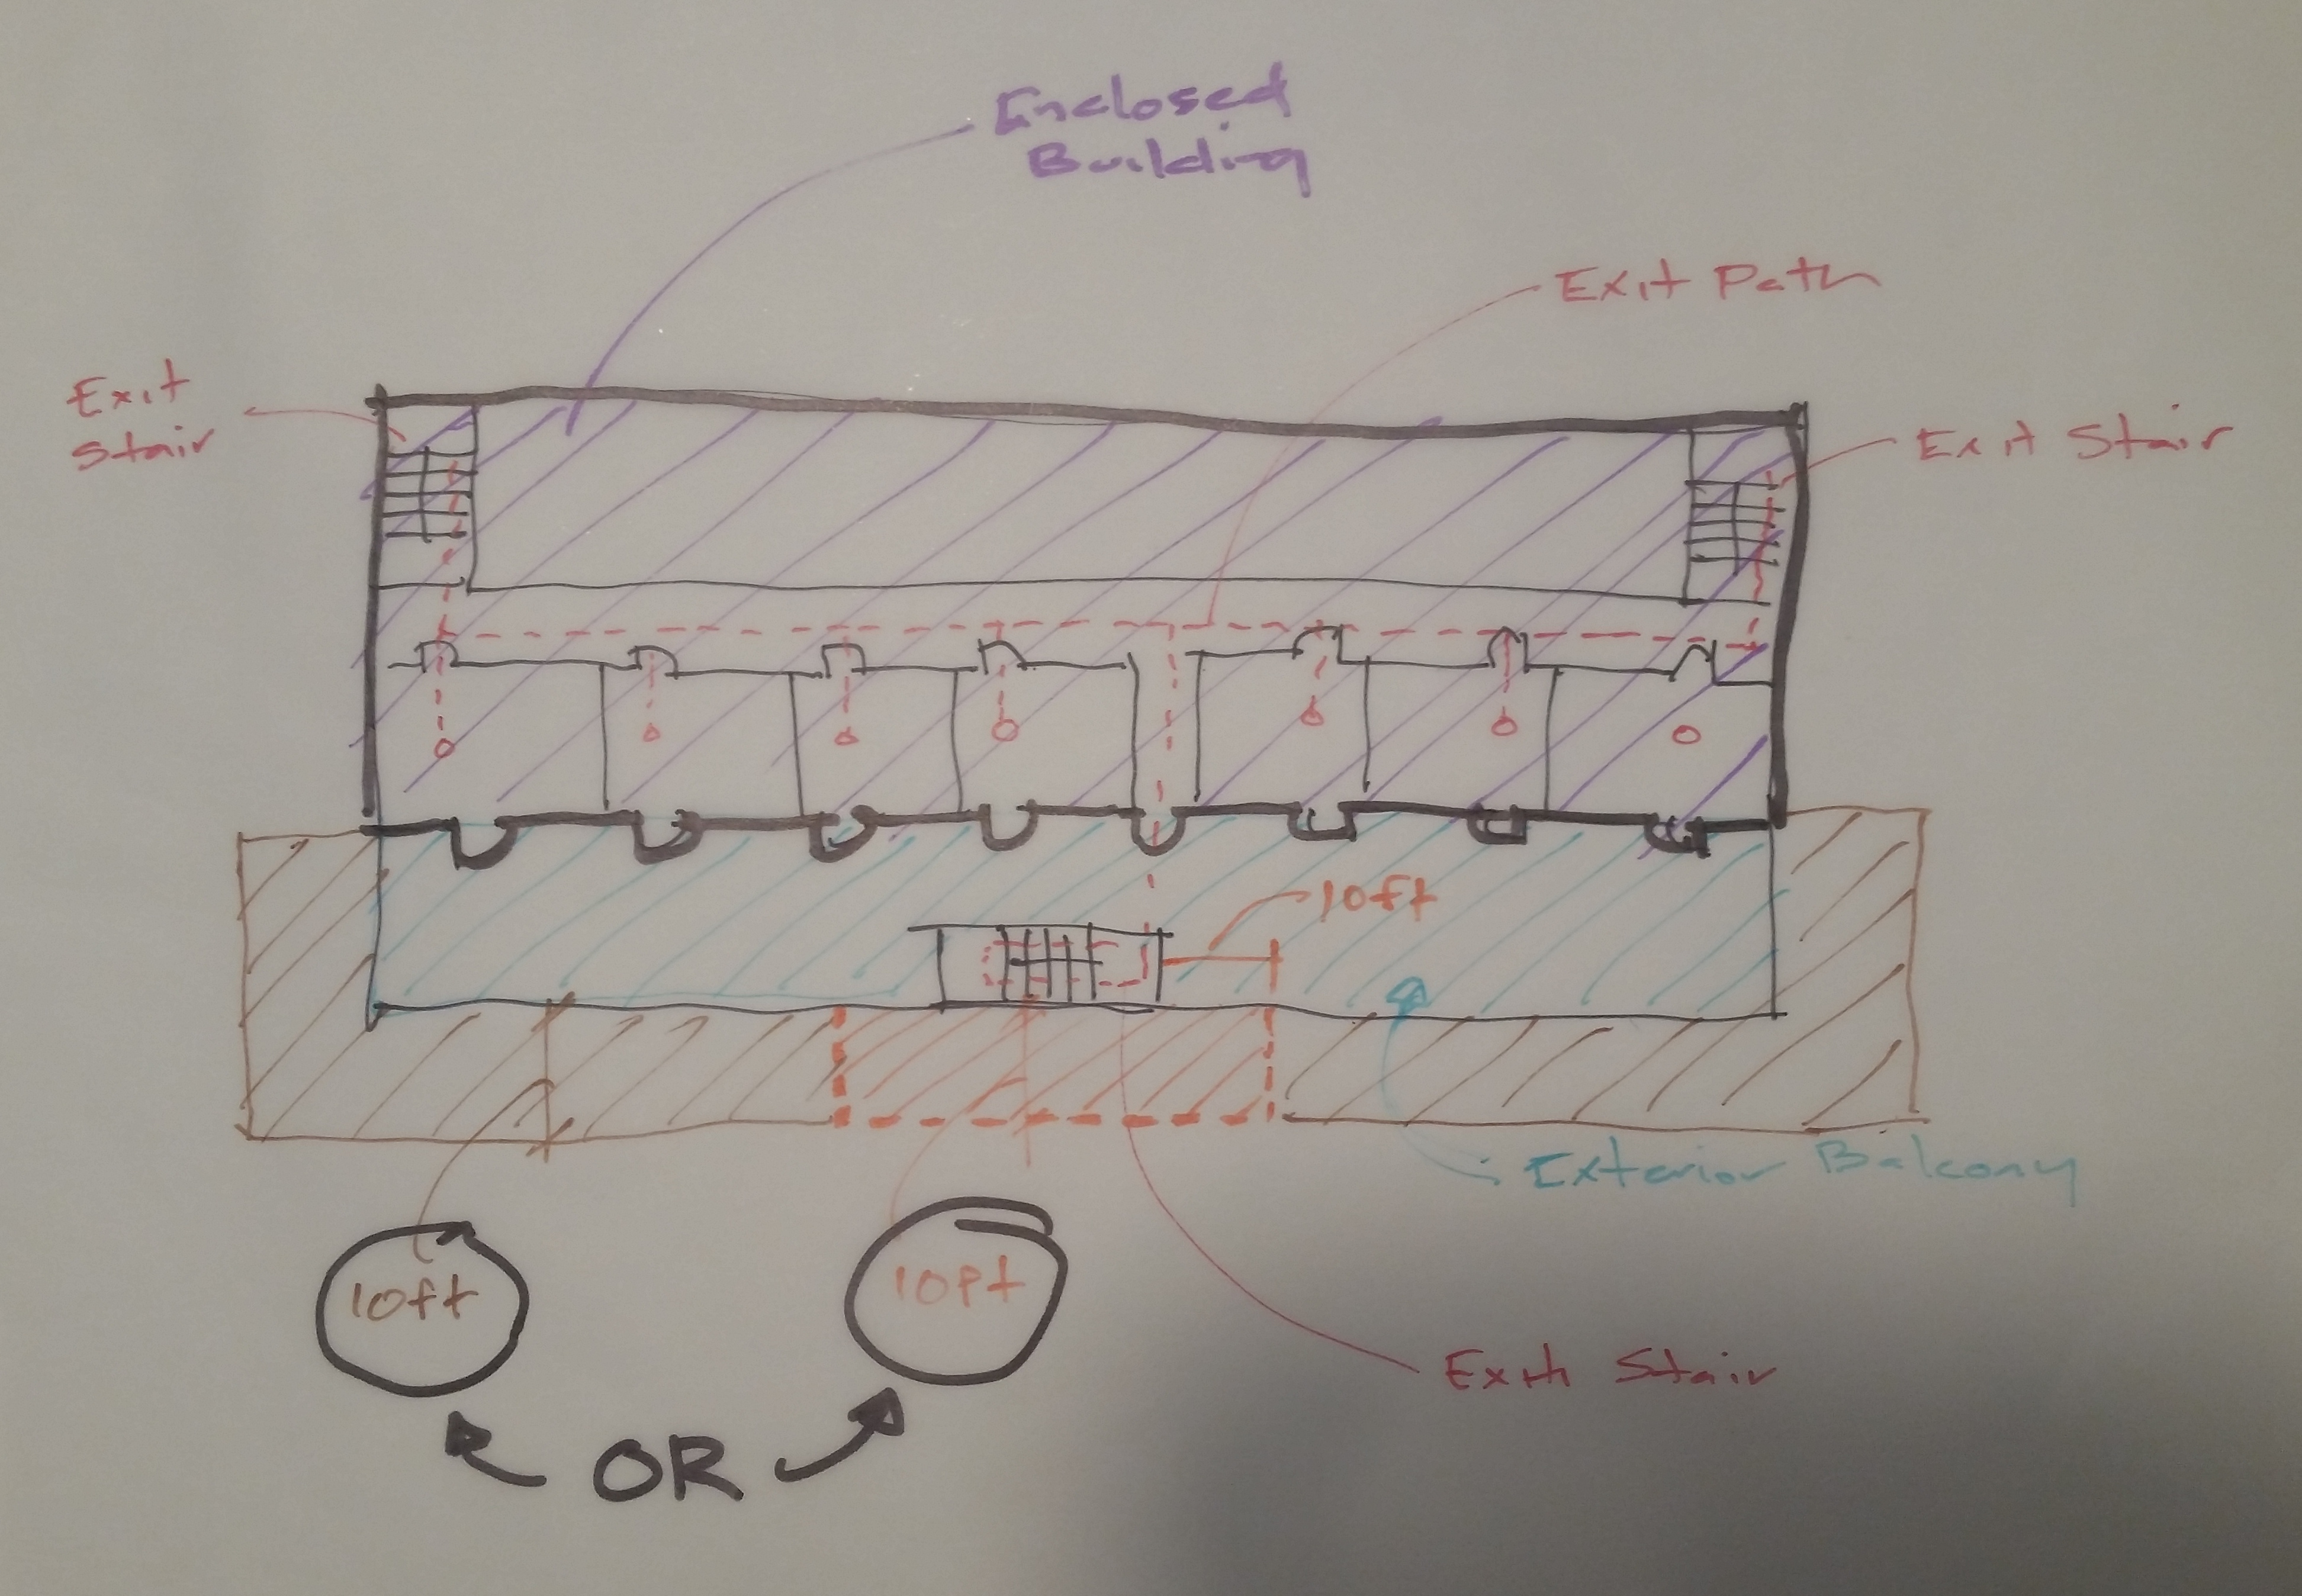 Enclosed
Building
Exit Path
Exit
Stair
Exit Stair
10ft
Exterior Balcony
10ft
10ft
Exit Stair
OR